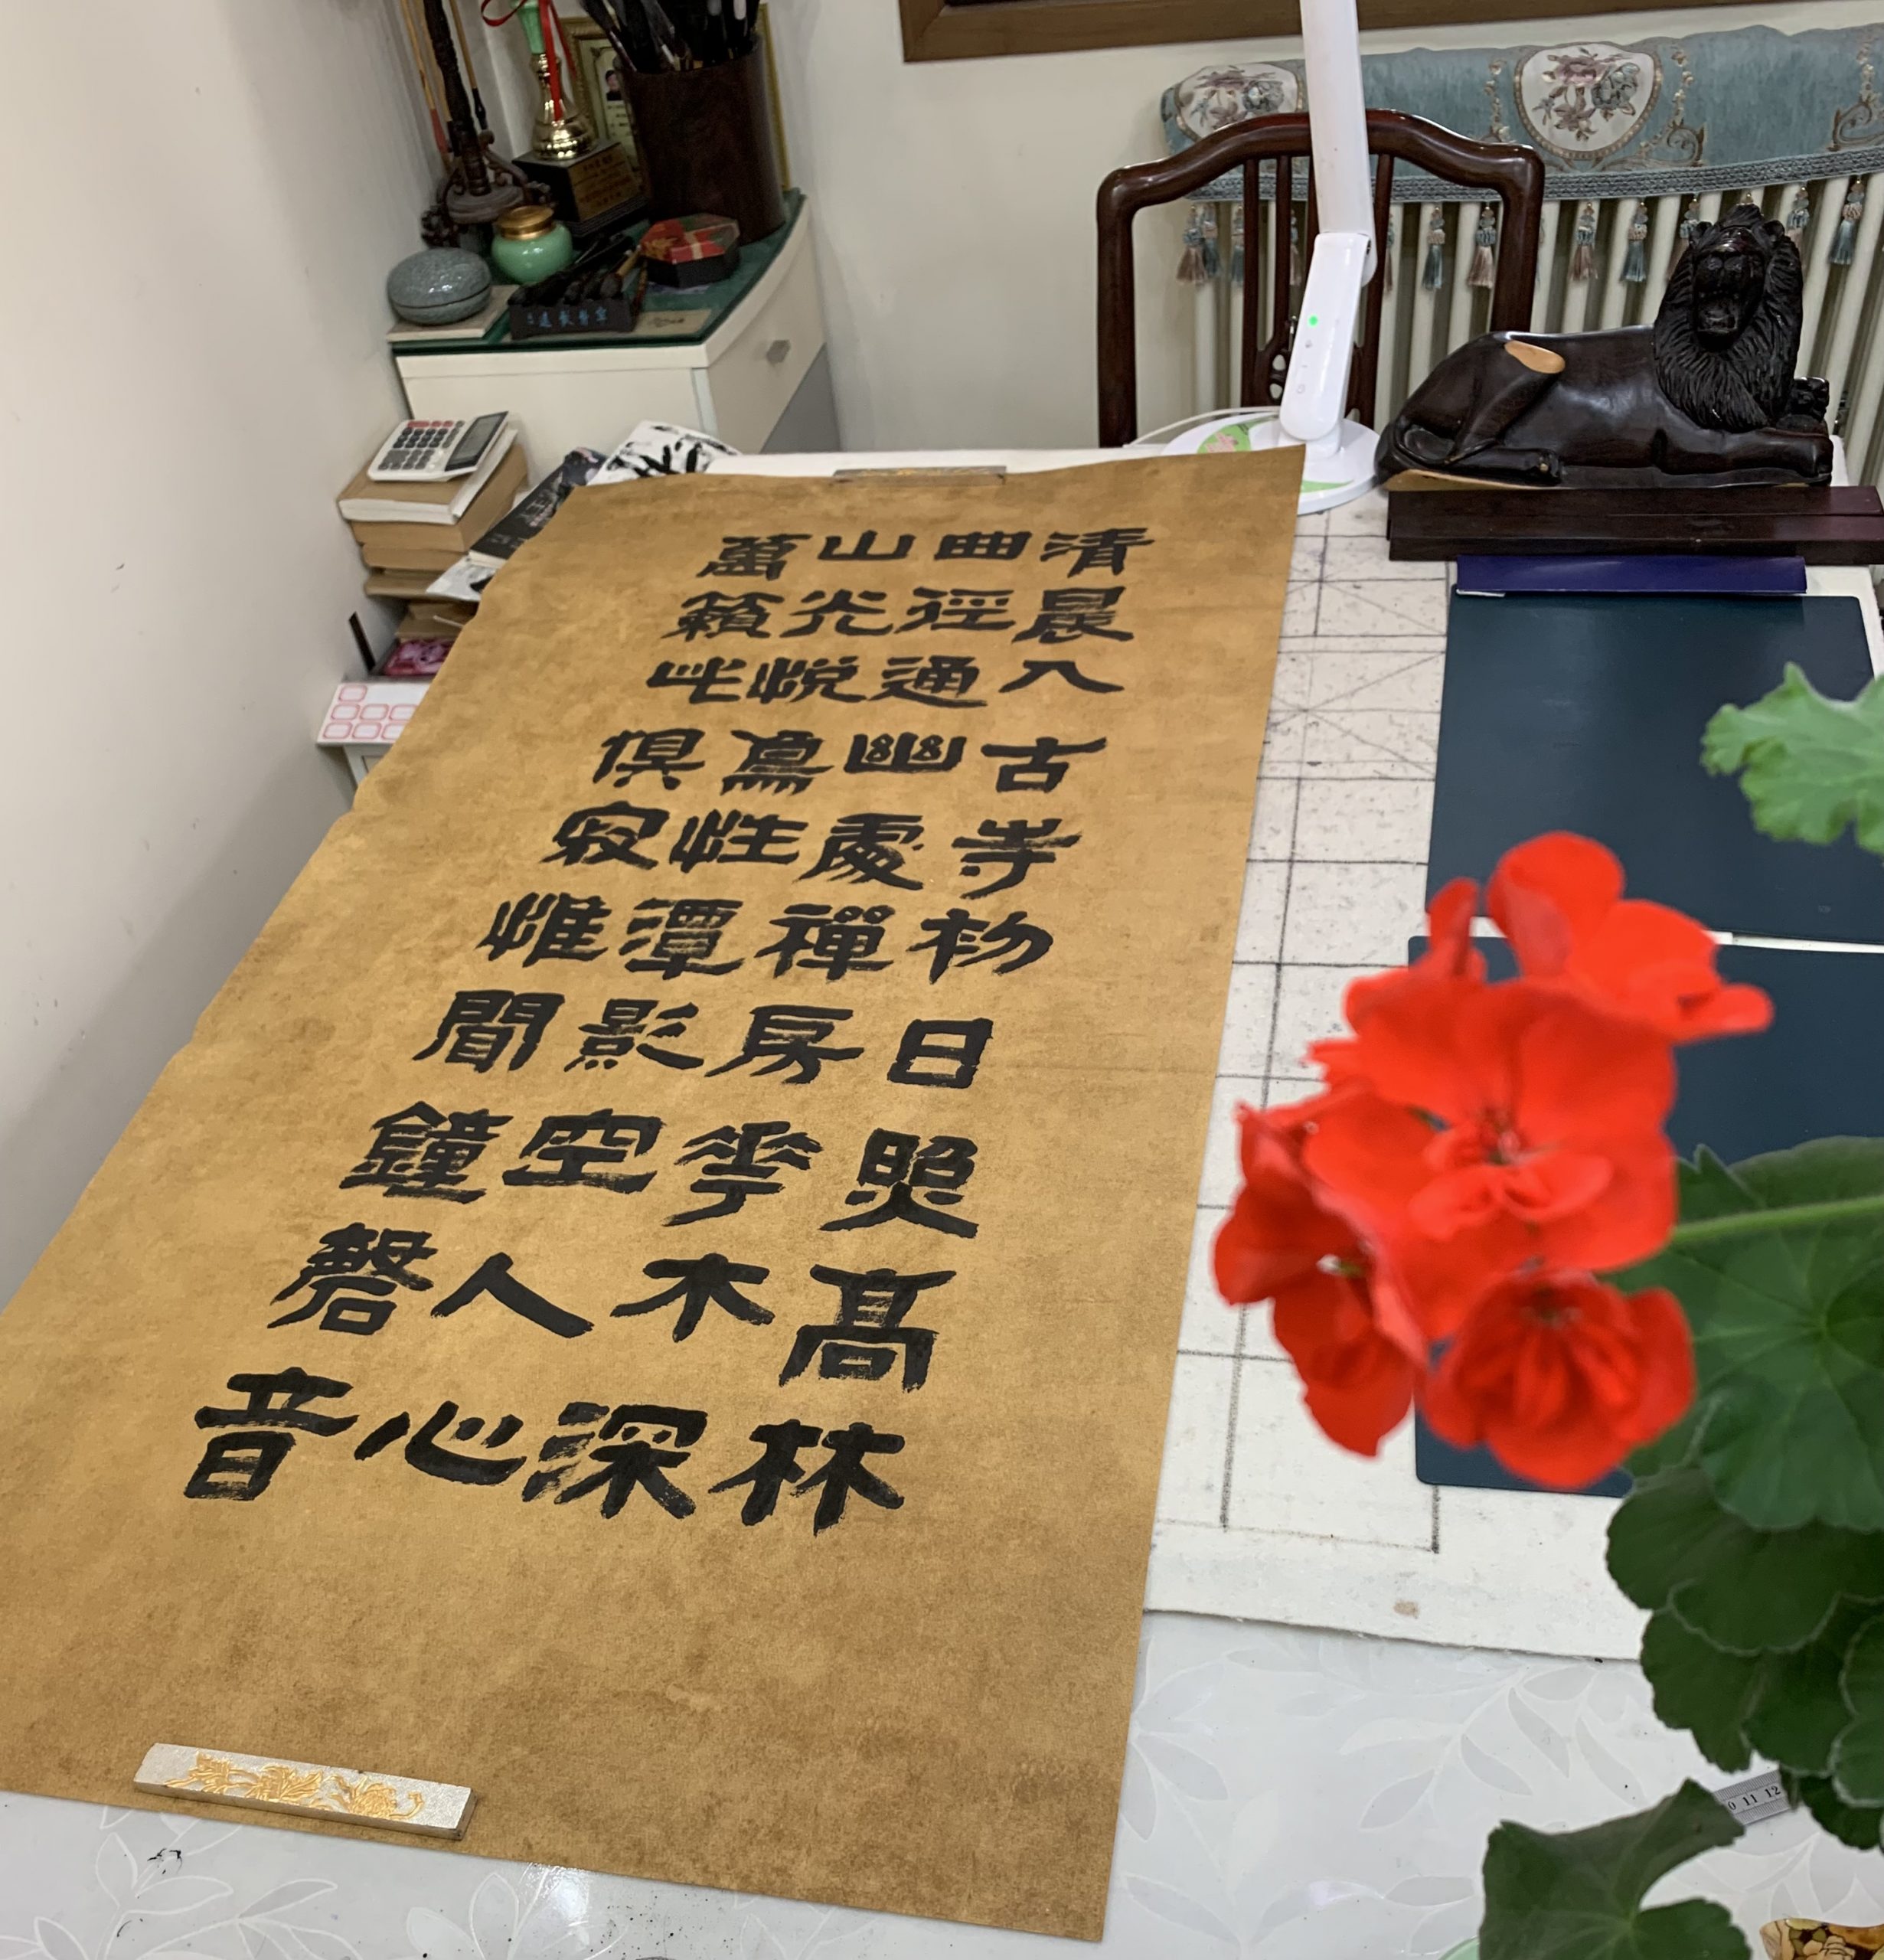 清晨入古寺初日照高林
曲徑通幽處禪房花木深
山光悅鳥性潭影空人心
萬籟此俱寂惟聞鐘磬音
10 11 12